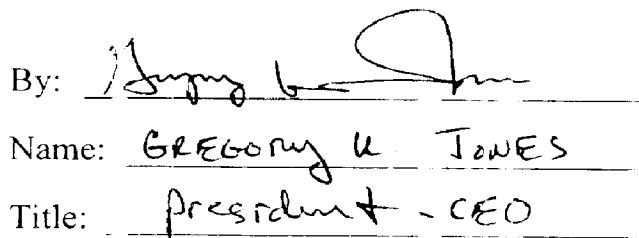 By:
Name: GREGORY K JONES
Title: President - CEO